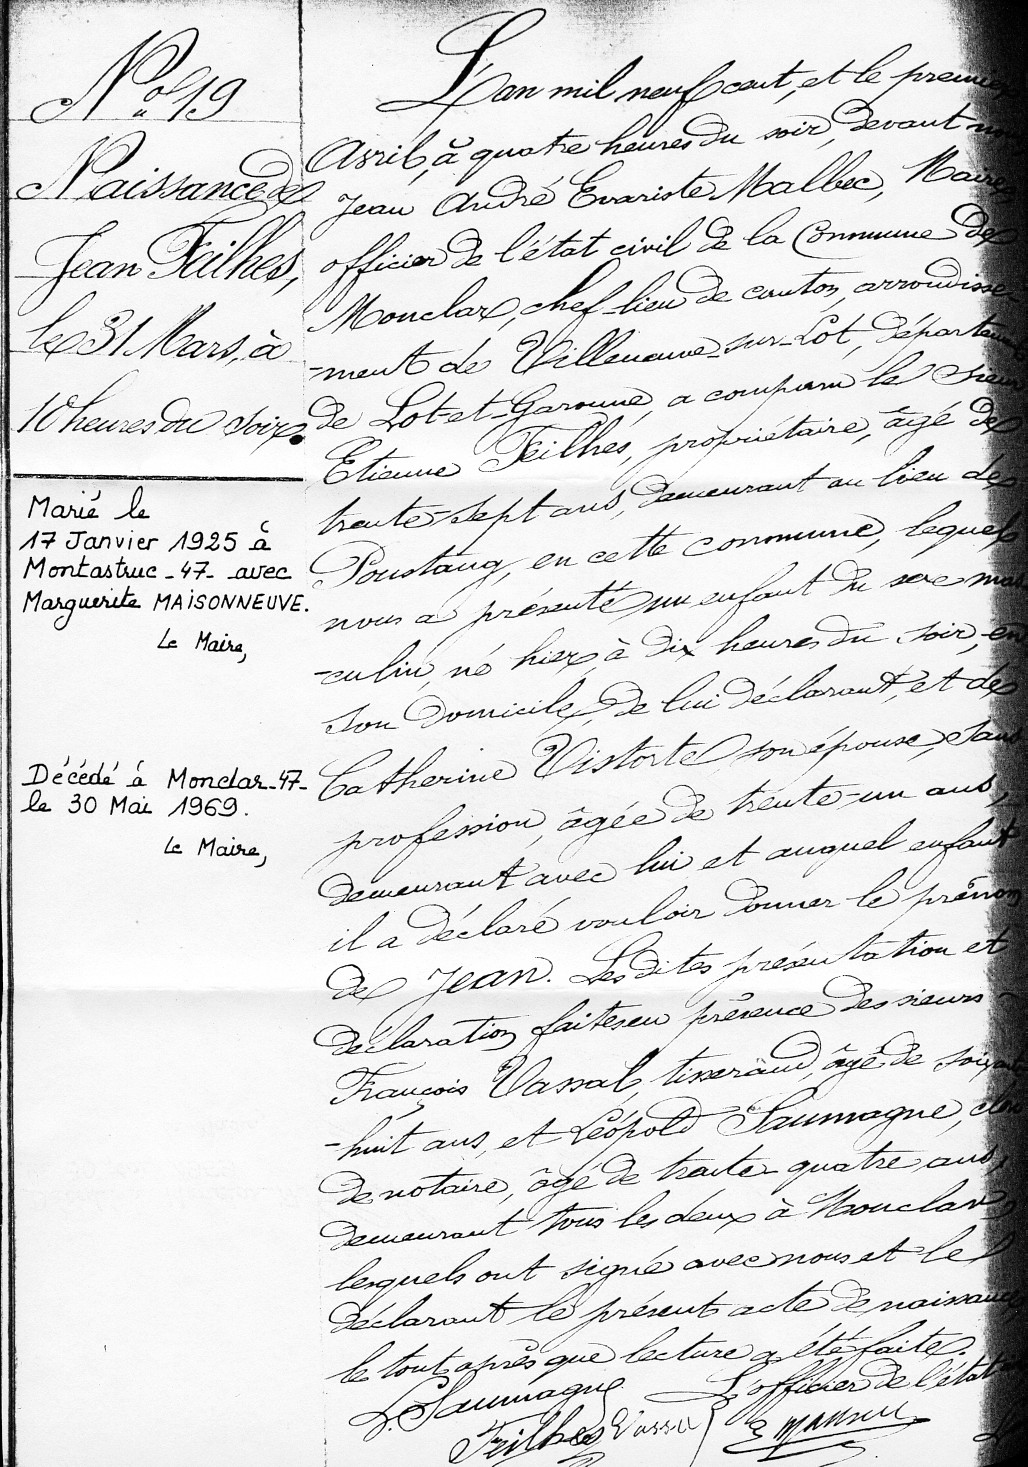 N° 19
Naissance de
Jean Feilhes,
le 31 Mars, à
10 heures du soir.
Marié le
17 Janvier 1925 à
Montastruc -47- avec
Marguerite MAISONNEUVE.
Le Maire,
Décédé à Monclar-47-
le 30 Mai 1969.
Le Maire,
L'an mil neuf cent, et le premier
Avril, à quatre heures du soir, devant nous
Jean André Evariste Malbec, Maire,
officier de l'état civil de la Commune de
Monclar, chef-lieu de canton, arrondisse-
-ment de Villeneuve-sur-Lot, département
de Lot-et-Garonne, a comparu le Sieur
Etienne Feilhes, propriétaire, âgé de
trente-sept ans, demeurant au lieu de
Poustang, en cette commune, lequel
nous a présenté un enfant du sexe mas
-culin, né hier, à dix heures du soir, en
son domicile, de lui déclarant, et de
Catherine Vistorte son épouse, sans
profession, âgée de trente-un ans,
demeurant avec lui et auquel enfant
il a déclaré vouloir donner le prénom
de Jean. Les dites présentation et
déclaration faites en présence des sieurs
François Vassal, tisserand, âgé de soixante
-huit ans, et Léopold Saumagne, clerc
de notaire, âgé de trente-quatre ans,
demeurant tous les deux à Monclar,
lesquels ont signé avec nous et le
déclarant le présent acte de naissance
le tout après que lecture a été faite.
L. Saumagne L'officier de l'état
Feilhes Vassal